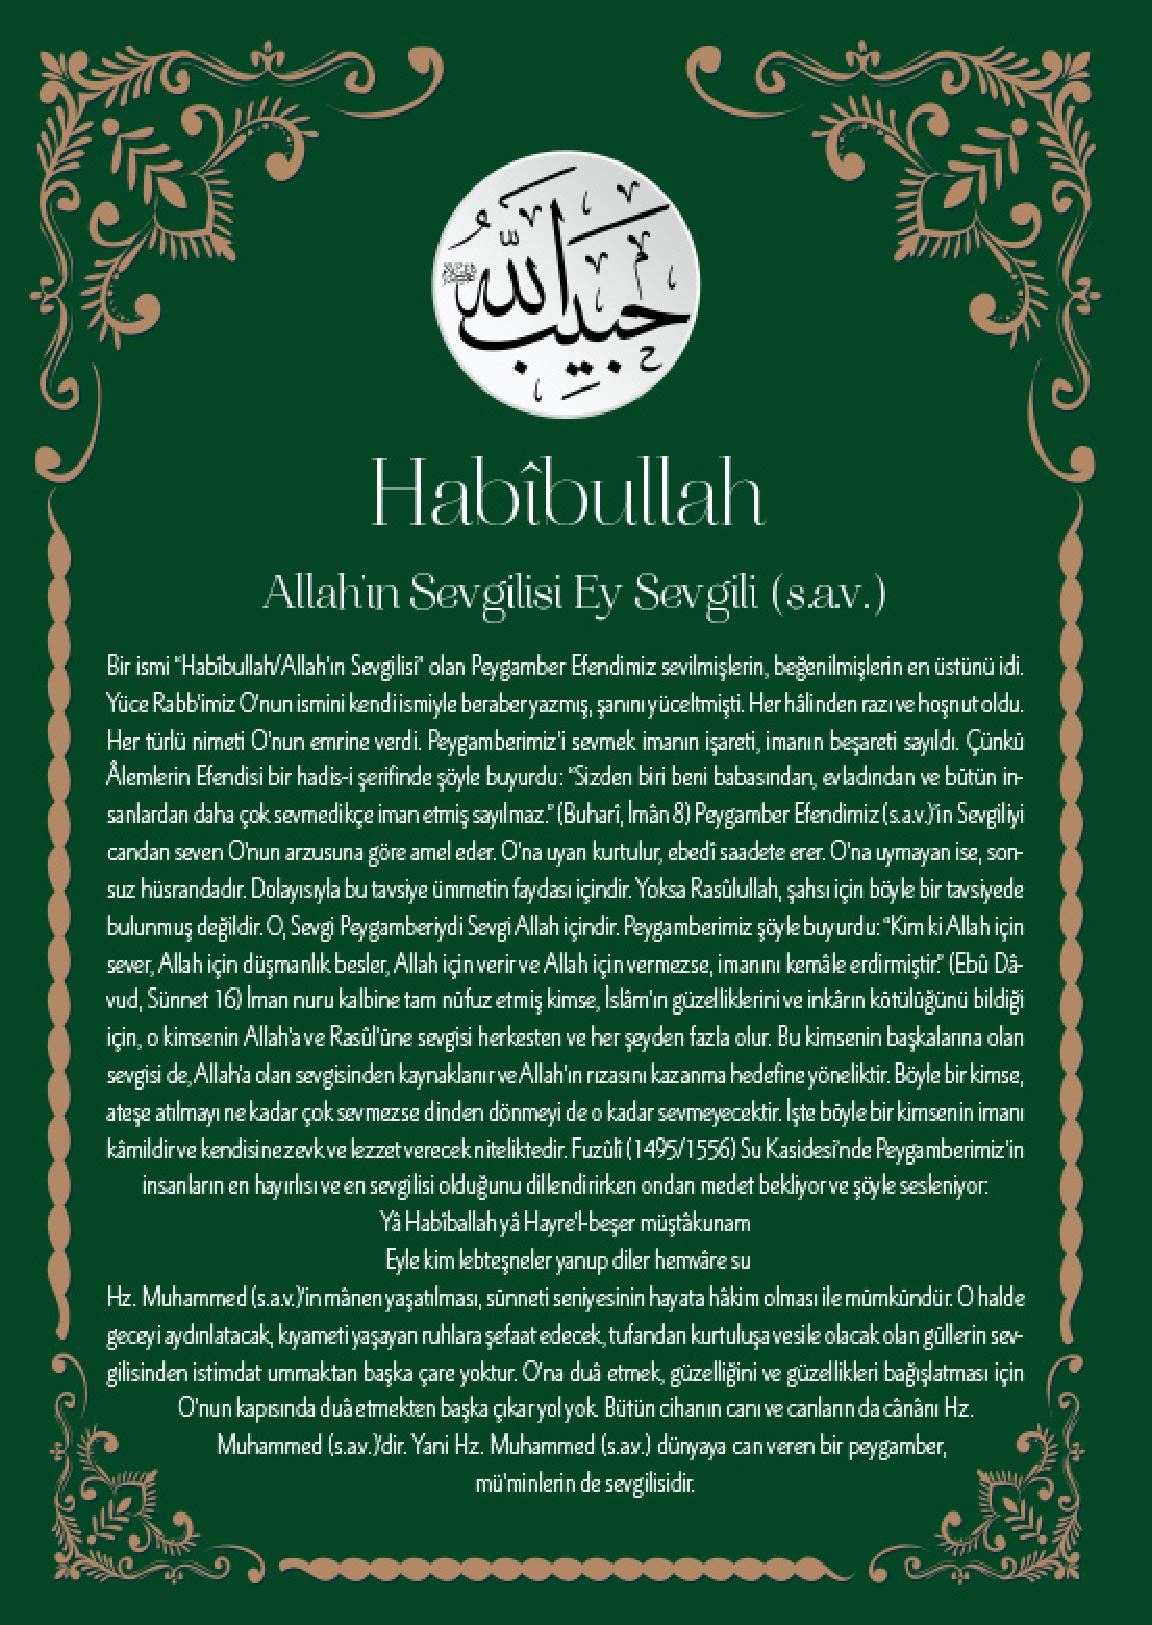 حَبِيبُ اللّٰه
ﷺ
Habîbullah
Allah'ın Sevgilisi Ey Sevgili (s.a.v.)
Bir ismi “Habîbullah/Allah'ın Sevgilisi” olan Peygamber Efendimiz sevilmişlerin, beğenilmişlerin en üstünü idi.
Yüce Rabb'imiz O'nun ismini kendi ismiyle beraber yazmış, şanını yüceltmişti. Her hâlinden razı ve hoşnut oldu.
Her türlü nimeti O'nun emrine verdi. Peygamberimiz'i sevmek imanın işareti, imanın beşareti sayıldı. Çünkü
Âlemlerin Efendisi bir hadis-i şerifinde şöyle buyurdu: “Sizden biri beni babasından, evladından ve bütün in-
sanlardan daha çok sevmedikçe iman etmiş sayılmaz.” (Buharî, İmân 8) Peygamber Efendimiz (s.a.v.)'in Sevgiliyi
candan seven O'nun arzusuna göre amel eder. O'na uyan kurtulur, ebedî saadete erer. O'na uymayan ise, son-
suz hüsrandadır. Dolayısıyla bu tavsiye ümmetin faydası içindir. Yoksa Rasûlullah, şahsı için böyle bir tavsiyede
bulunmuş değildir. O, Sevgi Peygamberiydi Sevgi Allah içindir. Peygamberimiz şöyle buyurdu: “Kim ki Allah için
sever, Allah için düşmanlık besler, Allah için verir ve Allah için vermezse, imanını kemâle erdirmiştir.” (Ebû Dâ-
vud, Sünnet 16) İman nuru kalbine tam nüfuz etmiş kimse, İslâm'ın güzelliklerini ve inkârın kötülüğünü bildiği
için, o kimsenin Allah'a ve Rasûl'üne sevgisi herkesten ve her şeyden fazla olur. Bu kimsenin başkalarına olan
sevgisi de, Allah'a olan sevgisinden kaynaklanır ve Allah'ın rızasını kazanma hedefine yöneliktir. Böyle bir kimse,
ateşe atılmayı ne kadar çok sevmezse dinden dönmeyi de o kadar sevmeyecektir. İşte böyle bir kimsenin imanı
kâmildir ve kendisine zevk ve lezzet verecek niteliktedir. Fuzûlî (1495/1556) Su Kasidesi'nde Peygamberimiz'in
insanların en hayırlısı ve en sevgilisi olduğunu dillendirirken ondan medet bekliyor ve şöyle sesleniyor:
Yâ Habîballah yâ Hayre'l-beşer müştâkunam
Eyle kim lebteşneler yanup diler hemvâre su
Hz. Muhammed (s.a.v.)'in mânen yaşatılması, sünneti seniyesinin hayata hâkim olması ile mümkündür. O halde
geceyi aydınlatacak, kıyameti yaşayan ruhlara şefaat edecek, tufandan kurtuluşa vesile olacak olan güllerin sev-
gilisinden istimdat ummaktan başka çare yoktur. O'na duâ etmek, güzelliğini ve güzellikleri bağışlatması için
O'nun kapısında duâ etmekten başka çıkar yol yok. Bütün cihanın canı ve canların da cânânı Hz.
Muhammed (s.a.v.)'dir. Yani Hz. Muhammed (s.a.v.) dünyaya can veren bir peygamber,
mü'minlerin de sevgilisidir.